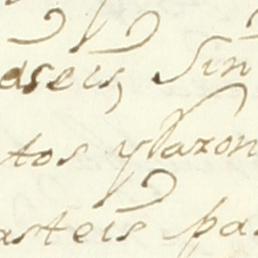 aseis, Sin
tos yRazon
asteis pa